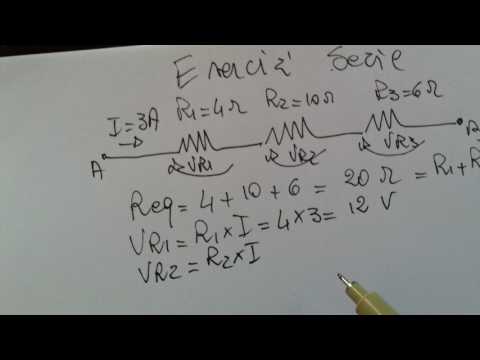 Esercizi Serie
R1=4Ω R2=10Ω R3=6Ω
I=3A
A VR1 VR2 VR3 B
Req = 4+10+6 = 20 Ω = R1+R
VR1 = R1×I = 4×3 = 12 V
VR2 = R2×I